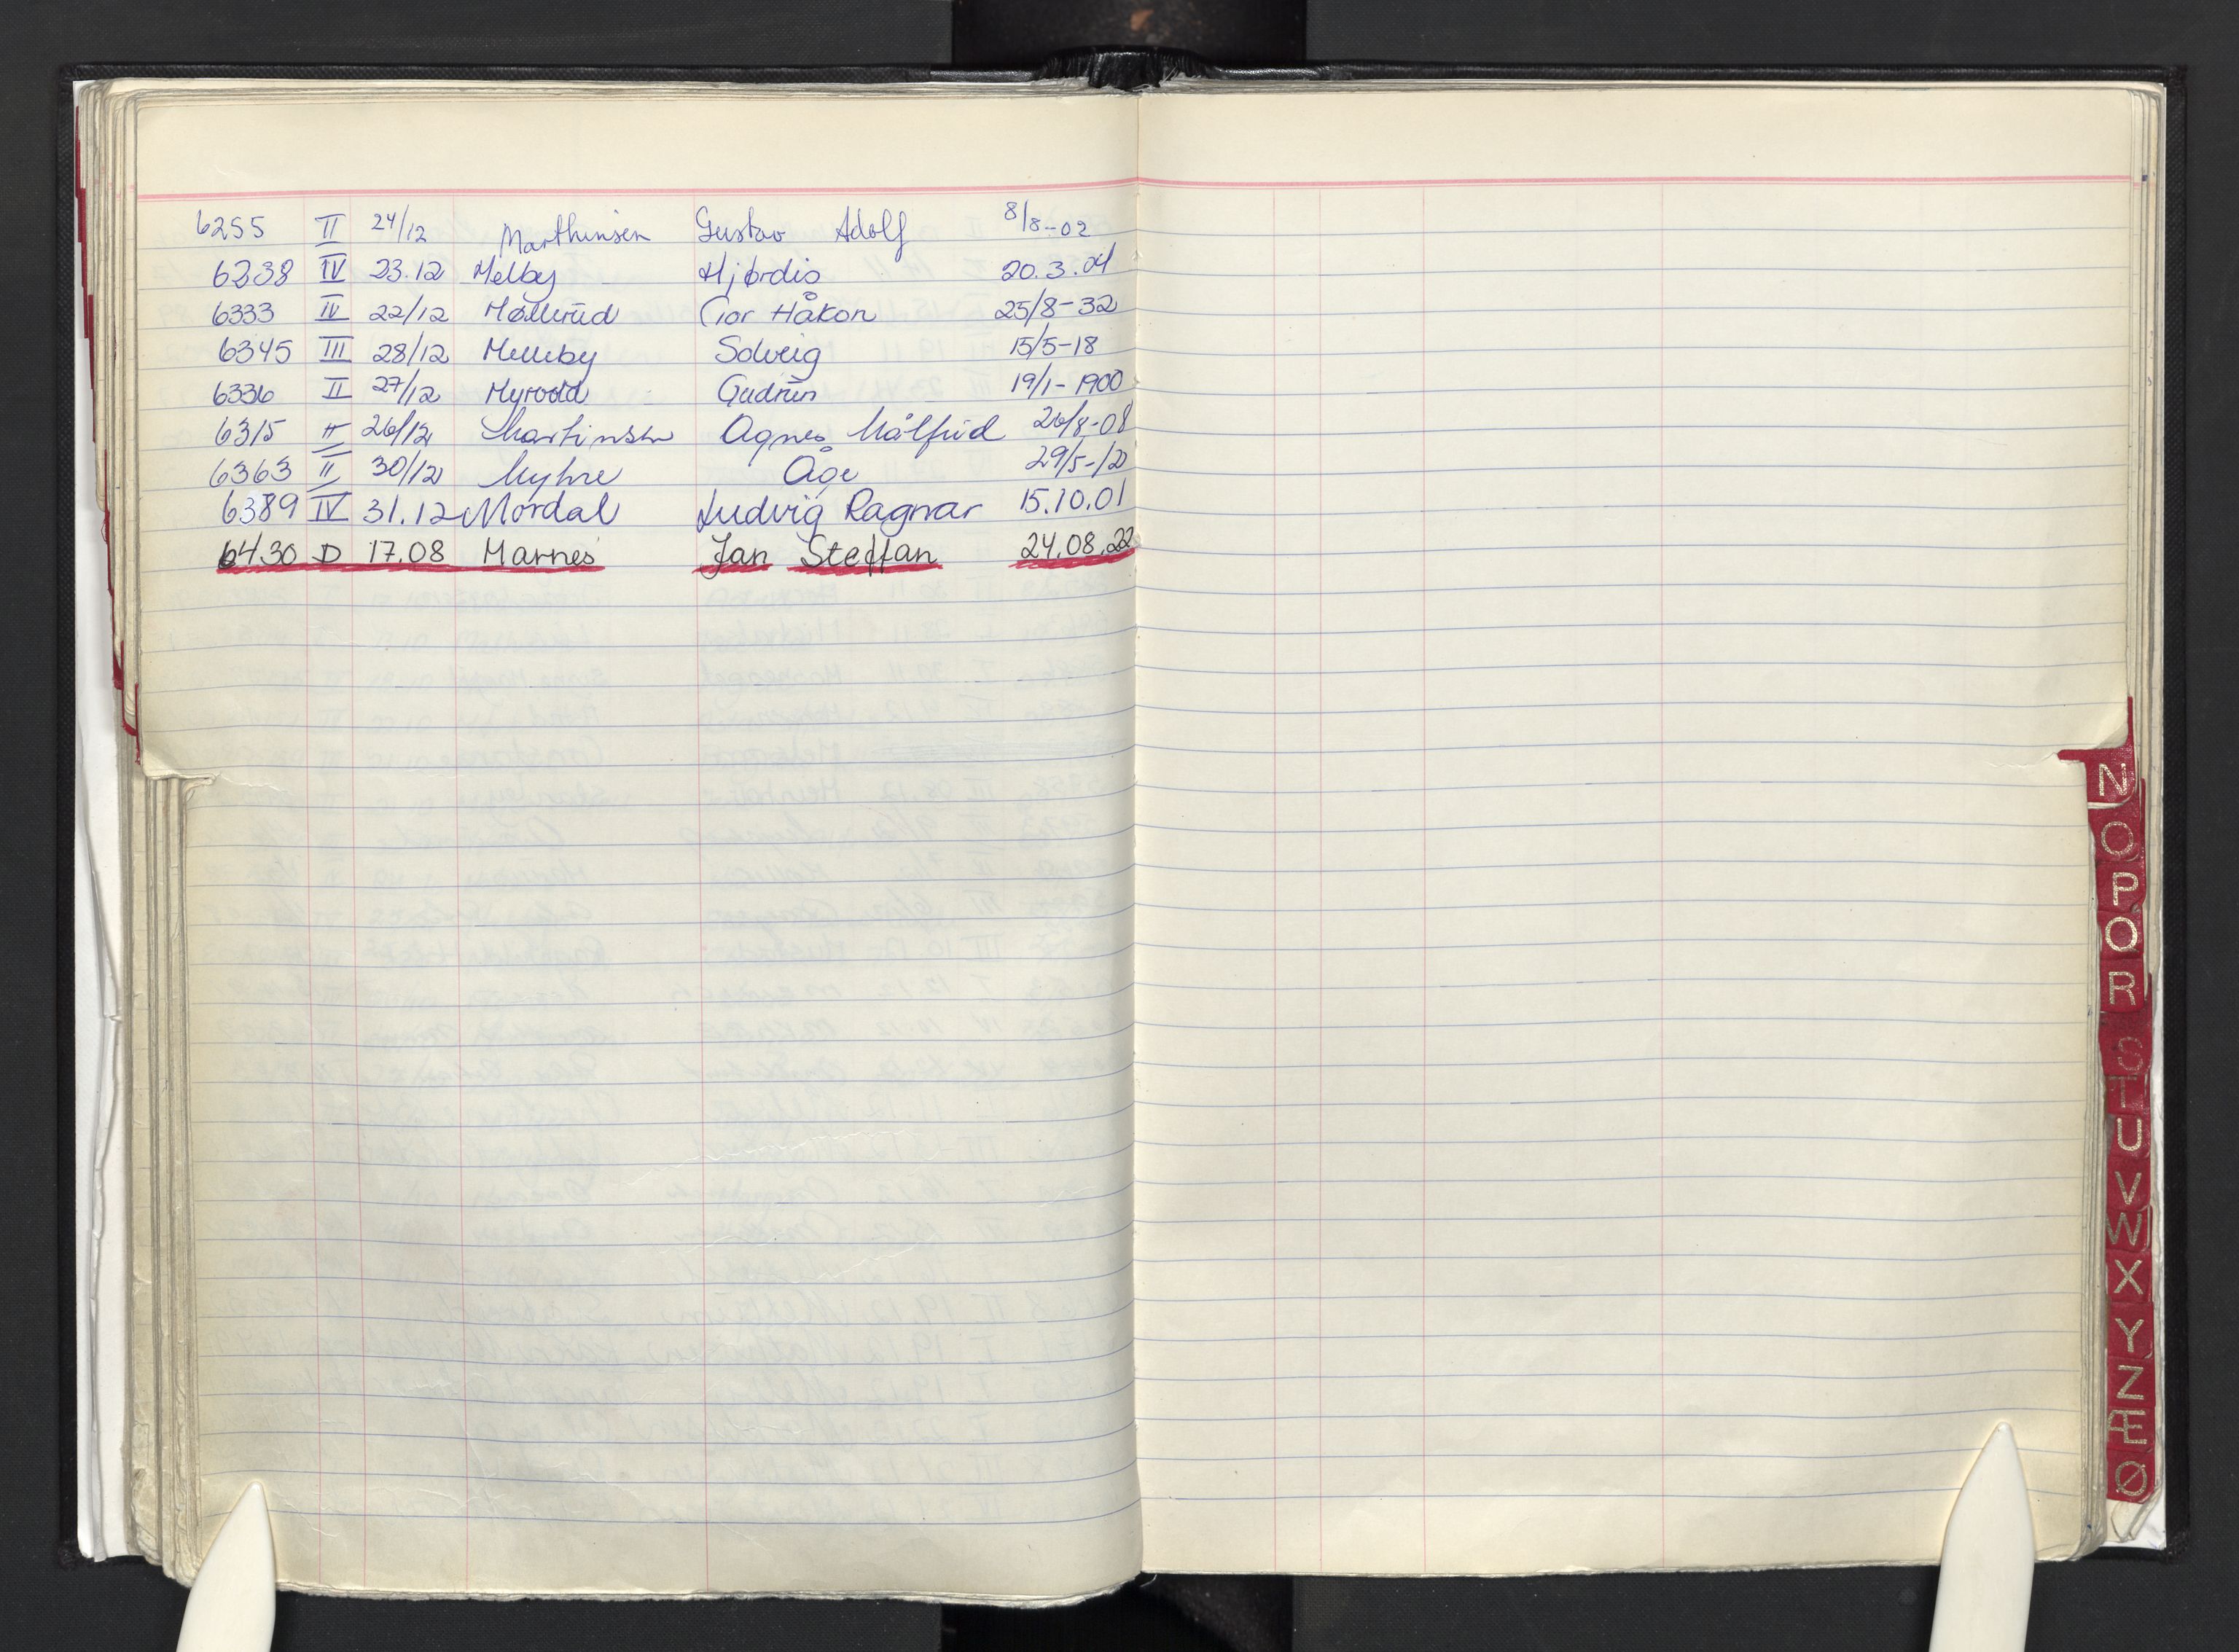 6255 II 24/12 Marthinsen Gustav Adolf 8/8-02
6238 IV 23.12 Melby Hjørdis 20.3.04
6333 IV 22/12 Møllerud Tor Håkon 25/8-32
6345 III 28/12 Melleby Solveig 15/5-18
6336 II 27/12 Myrvold Gudrun 19/1-1900
6315 II 26/12 Martinsen Agnes Målfrid 26/8-08
6363 II 30/12 Myhre Åge 29/5-12
6389 IV 31.12 Mordal Ludvig Ragnar 15.10.01
6430 D 17.08 Marnes Jan Steffan 24.08.22
N
O
P
Q
R
S
T
U
V
W
X
Y
Z
Æ
Ø